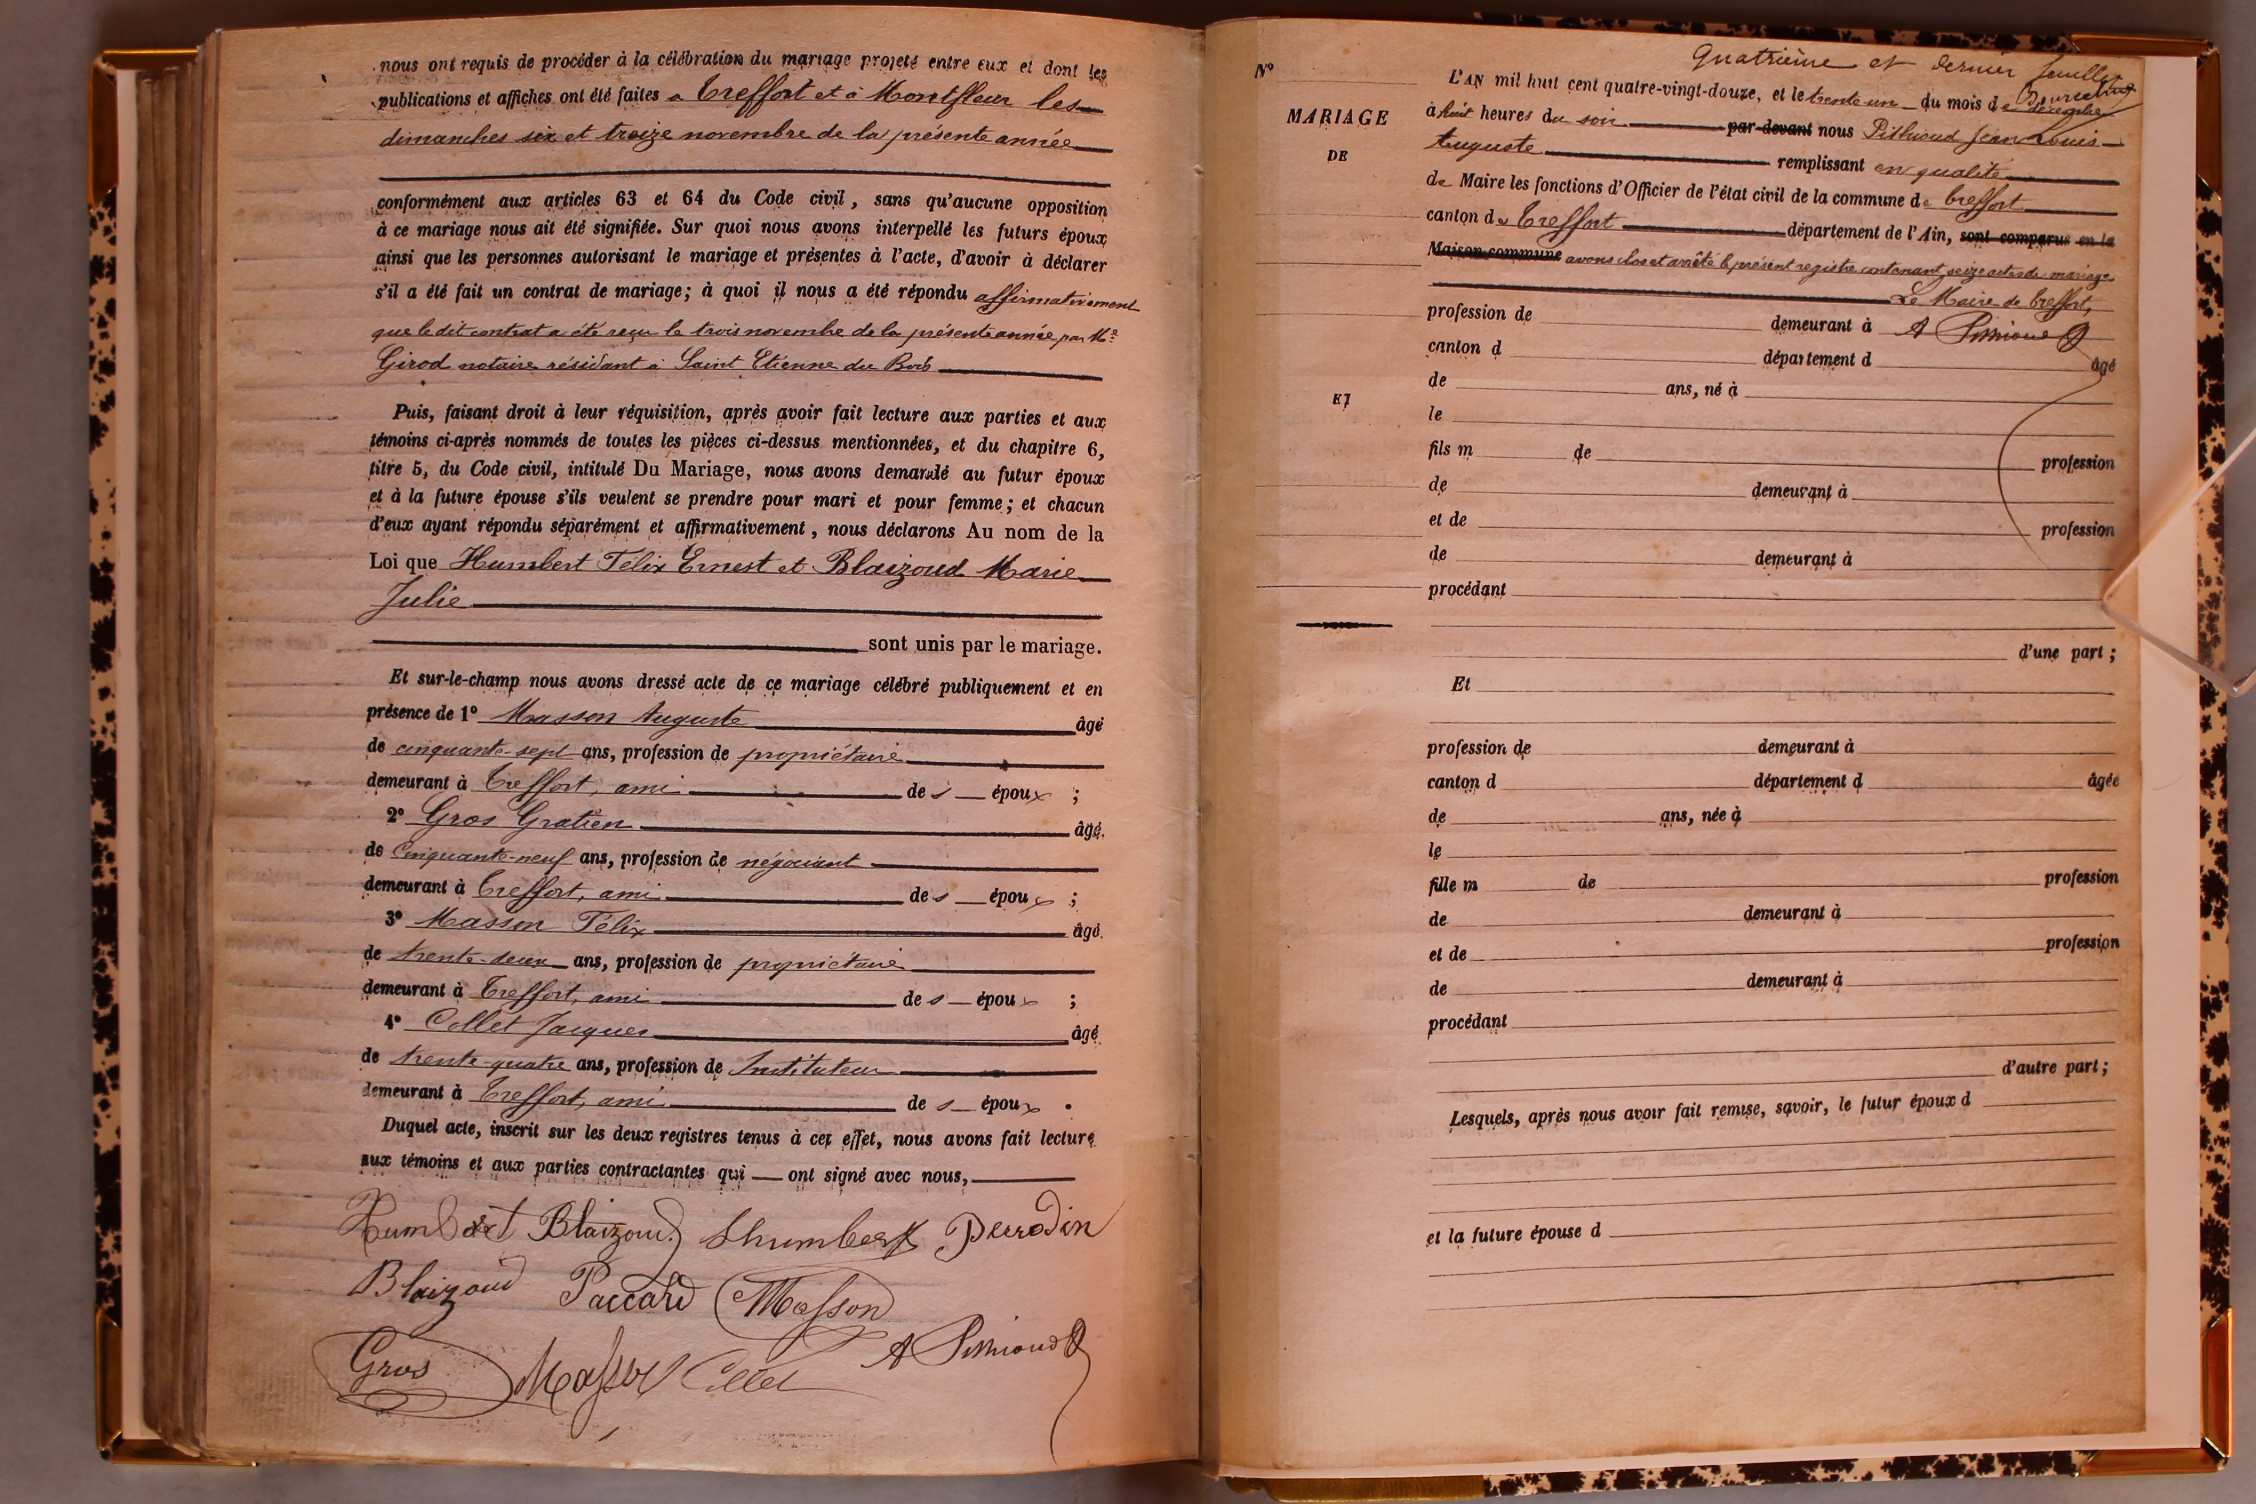 nous ont requis de procéder à la célébration du mariage projeté entre eux et dont les
publications et affiches ont été faites a Treffort et à Montfleur les
dimanches six et treize novembre de la présente année
conformément aux articles 63 et 64 du Code civil, sans qu'aucune opposition
à ce mariage nous ait été signifiée. Sur quoi nous avons interpellé les futurs époux
ainsi que les personnes autorisant le mariage et présentes à l'acte, d'avoir à déclarer
s'il a été fait un contrat de mariage; à quoi il nous a été répondu affirmativement
que le dit contrat a été reçu le trois novembre de la présente année par Me
Girod notaire résidant à Saint Etienne du Bois
Puis, faisant droit à leur réquisition, après avoir fait lecture aux parties et aux
témoins ci-après nommés de toutes les pièces ci-dessus mentionnées, et du chapitre 6,
titre 5, du Code civil, intitulé Du Mariage, nous avons demandé au futur époux
et à la future épouse s'ils veulent se prendre pour mari et pour femme; et chacun
d'eux ayant répondu séparément et affirmativement, nous déclarons Au nom de la
Loi que Humbert Félix Ernest et Blaizoud Marie
Julie
sont unis par le mariage.
Et sur-le-champ nous avons dressé acte de ce mariage célébré publiquement et en
présence de 1° Masson Auguste âgé
de cinquante-sept ans, profession de propriétaire
demeurant à Treffort, ami des époux ;
2° Gros Gratien âgé
de cinquante-neuf ans, profession de négociant
demeurant à Treffort, ami des époux ;
3° Masson Félix âgé
de trente-deux ans, profession de propriétaire
demeurant à Treffort, ami des époux ;
4° Collet Jacques âgé
de trente-quatre ans, profession de Instituteur
demeurant à Treffort, ami des époux .
Duquel acte, inscrit sur les deux registres tenus à cet effet, nous avons fait lecture
aux témoins et aux parties contractantes qui ont signé avec nous,
Humbert Blaizoud Perrodin
Blaizoud Paccard Masson
Gros Masson Collet A Pithioud
Quatrième et dernier feuillet
N°
MARIAGE
DE
ET
L'AN mil huit cent quatre-vingt-douze, et le trente-un du mois de décembre
à huit heures du soir par-devant nous Pithioud Jean Louis
Auguste remplissant en qualité
de Maire les fonctions d'Officier de l'état civil de la commune de Treffort
canton de Treffort département de l'Ain, sont comparus en la
Maison commune avons clos et arrêté le présent registre contenant seize actes de mariage
Le Maire de Treffort,
profession de demeurant à A Pithioud
canton d département d âgé
de ans, né à
le
fils m de profession
de demeurant à
et de profession
de demeurant à
procédant
d'une part ;
Et
profession de demeurant à
canton d département d âgée
de ans, née à
le
fille m de profession
de demeurant à
et de profession
de demeurant à
procédant
d'autre part ;
Lesquels, après nous avoir fait remise, savoir, le futur époux d
et la future épouse d